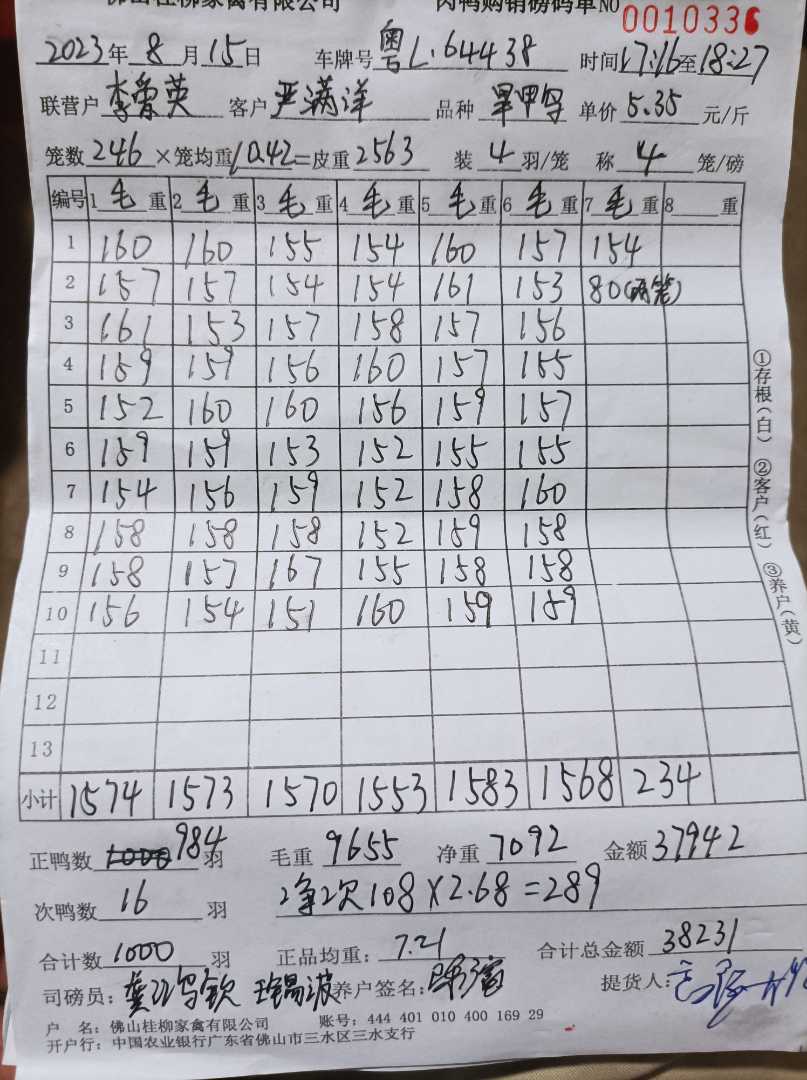 佛山桂柳家禽有限公司 肉鸭购销磅码单 NO 0010336
2023年 8月 15日 车牌号 粤L·64438 时间17:16至18:27
联营户 李爱英 客户 严满洋 品种 单价 5.35 元/斤
笼数 246 ×笼均重 10.42 =皮重 2563 装 4 羽/笼 称 4 笼/磅
编号 1 毛 重 2 毛 重 3 毛 重 4 毛 重 5 毛 重 6 毛 重 7 毛 重 8 重
1 160 160 155 154 160 157 154
2 157 157 154 154 161 153 80(两笼)
3 161 153 157 158 157 156
4 159 159 156 160 157 155
5 152 160 160 156 159 157
6 159 159 153 152 155 155
7 154 156 159 152 158 160
8 158 158 158 152 159 158
9 158 157 167 155 158 158
10 156 154 151 160 159 159
11
12
13
小计 1574 1573 1570 1553 1583 1568 234
正鸭数 1000 984 羽 毛重 9655 净重 7092 金额 37942
次鸭数 16 羽 净次108×2.68=289
合计数 1000 羽 正品均重: 7.21 合计总金额 38231
司磅员: 养户签名: 提货人:
户 名: 佛山桂柳家禽有限公司 账号: 444 401 010 400 169 29
开户行: 中国农业银行广东省佛山市三水区三水支行
①存根(白) ②客户(红) ③养户(黄)